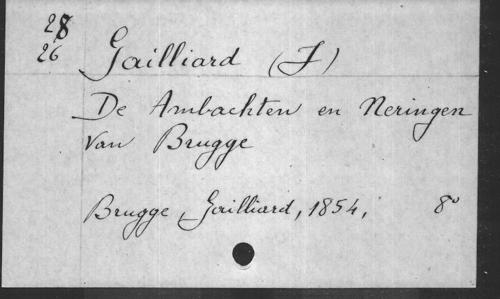 28
26
Gailliard (J)
De Ambachten en Neringen
van Brugge
Brugge, Gailliard, 1854, 8°